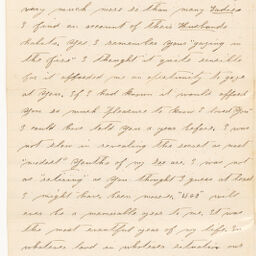 very much more so than many Ladies
I find an account of their Husbands
habits, yes I remember you "gazing in
the fire" I thought it quite sensible
for it afforded me an opportunity to gaze
at you. If I had known it would afford
you so much pleasure to know I loved you"
I could have told you a year before, I was
not slow in revealing the secret as most
"modest" Youths of my sex are, I was not
as "retiring" as you thought I guess at least
I might have been worse, will
ever be a memorable year to me. It was
the most eventful year of my life, In
whatever land in whatever situation our